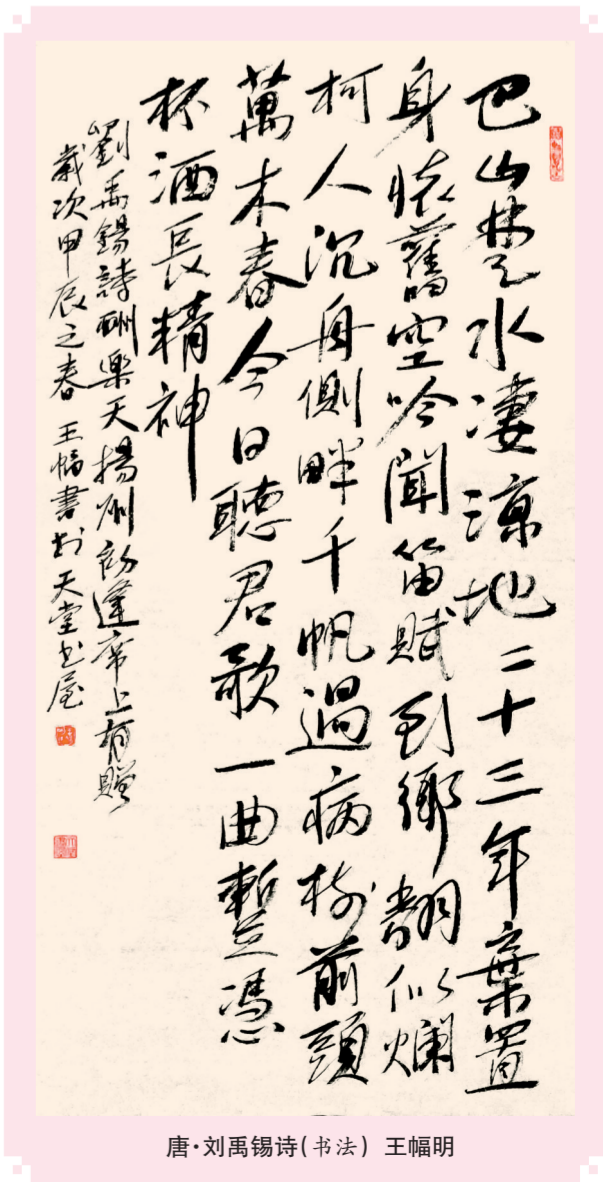 巴山楚水淒涼地二十三年棄置
身懷舊空吟聞笛賦到鄉翻似爛
柯人沉舟側畔千帆過病樹前頭
萬木春今日聽君歌一曲暫憑
杯酒長精神
劉禹錫詩酬樂天揚州初逢席上有贈
歲次甲辰之春 王幅書於天堂书屋
唐·刘禹锡诗(书法) 王幅明